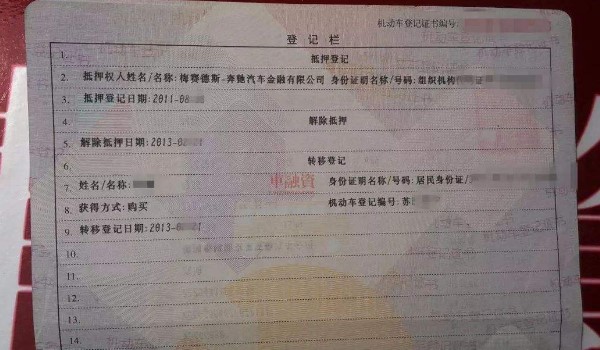 机动车登记证书编号:
登记栏
1. 抵押登记
2. 抵押权人姓名/名称:梅赛德斯-奔驰汽车金融有限公司 身份证明名称/号码:组织机构 证
3. 抵押登记日期:2011-08
4. 解除抵押
5. 解除抵押日期:2013- 21
6. 转移登记
7. 姓名/名称: 身份证明名称/号码:居民身份证/
8. 获得方式:购买 机动车登记编号:苏
9. 转移登记日期:2013- 21
10.
11.
12.
13.
14.